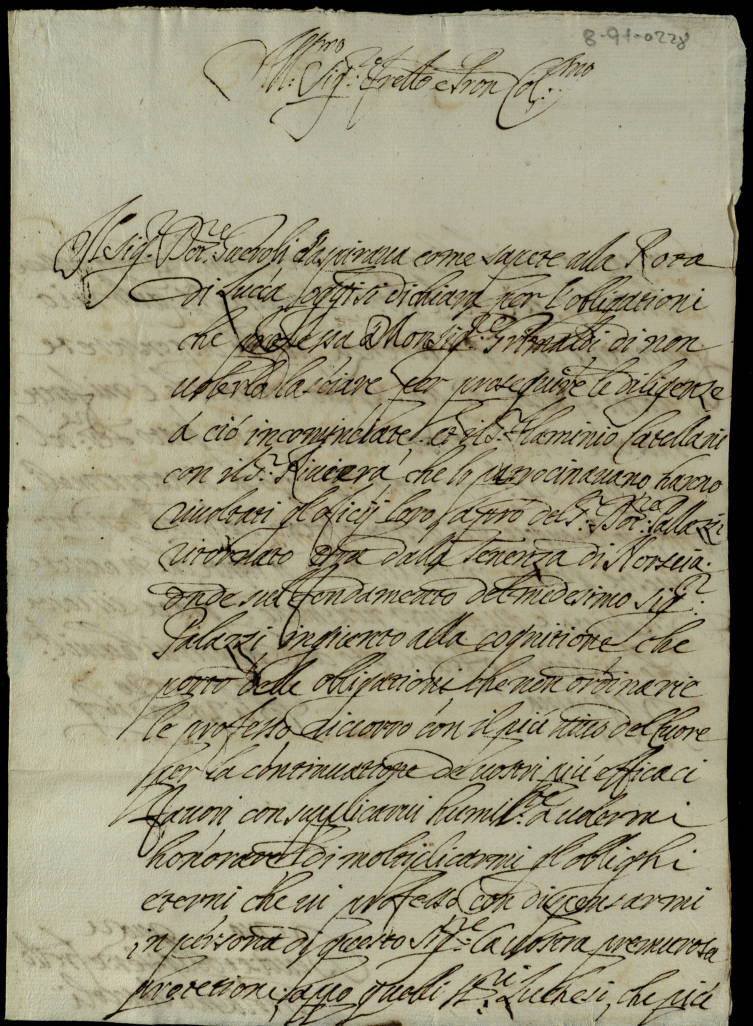 8-91-0228
Ill:mo Sig:r e Pron Col:mo
Il Sig:r Dor:re che aspiraua come sapete alla Rota
di Lucca oggi si dichiara per l'obligationi
che professa à Monsig:re Grimaldi di non
uolerla lasciare per proseguire le diligenze
à ciò incominciate et il S:r Flaminio Catellani
con il S:r che lo patrocinauano hanno
riuoltati gl'oficij loro à prò del S:r Dor:re Pallazzi
ritornato ora dalla Tenenza di Norscia.
onde sul fondamento del medesimo Sig:r
Palazzi, inquanto alla cognitione che
porto delle obligationi che non ordinarie
le professo, ricorro con il più uiuo del Cuore
per la continuatione de uostri più efficaci
fauori con supplicarui humil:te à uolermi
honorare di moltiplicarmi gl'oblighi
eterni che ui professo con dispensarmi
in persona di questo Sig:re la uostra premurosa
protetione apo quelli SS:ri Luchesi, che più